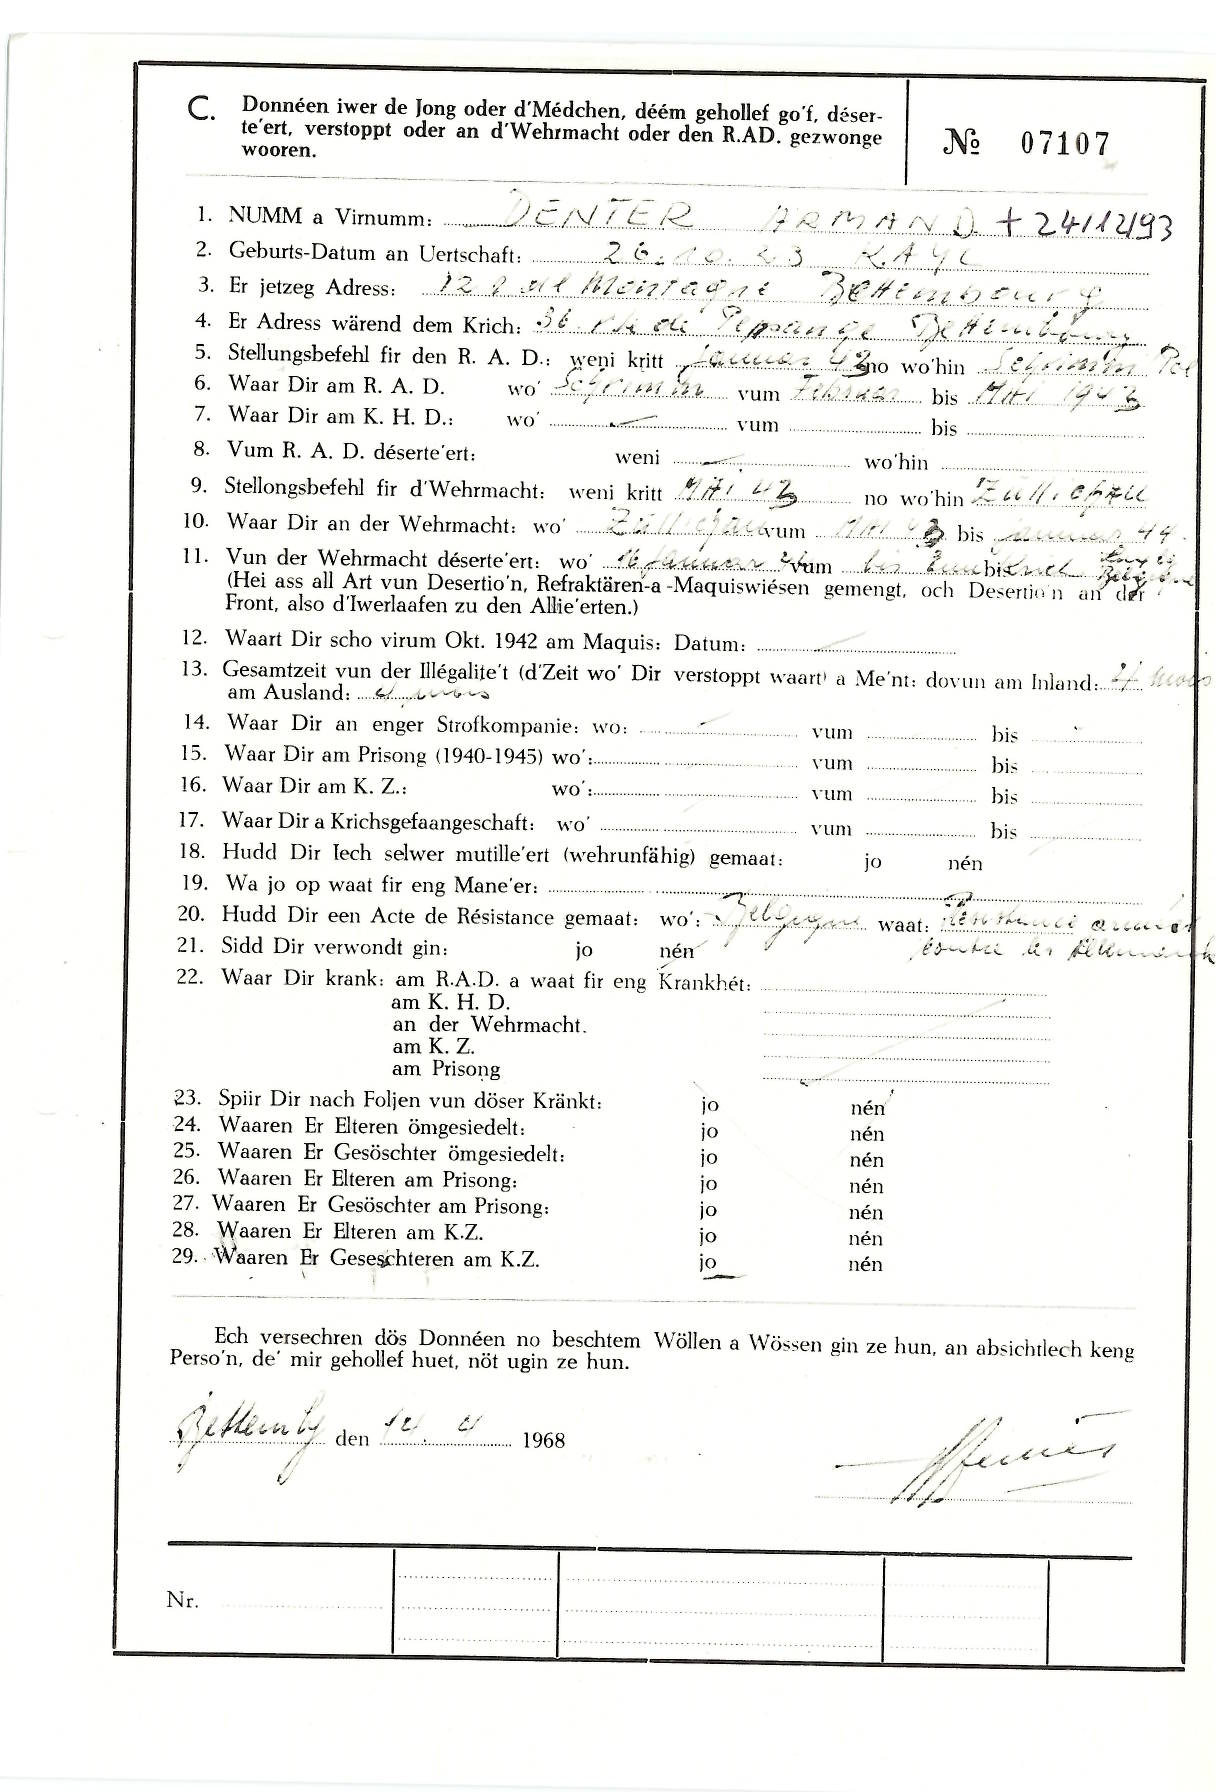 C. Donnéen iwer de Jong oder d'Médchen, déém gehollef go'f, déser-
te'ert, verstoppt oder an d'Wehrmacht oder den R.AD. gezwonge
wooren.
№ 07107
1. NUMM a Virnumm: DENTER ARMAND + 24/12/93
2. Geburts-Datum an Uertschaft: 26.10.23 KAYL
3. Er jetzeg Adress: 12 Montagne Bettembourg
4. Er Adress wärend dem Krich: 36 de Peppange Bettembourg
5. Stellungsbefehl fir den R. A. D.: weni kritt Januar 43 no wo'hin Schrimm Pol
6. Waar Dir am R. A. D. wo' Schrimm vum Februar bis MAI 1943
7. Waar Dir am K. H. D.: wo' vum bis
8. Vum R. A. D. déserte'ert: weni wo'hin
9. Stellongsbefehl fir d'Wehrmacht: weni kritt MAI 43 no wo'hin Züllichau
10. Waar Dir an der Wehrmacht: wo' Züllichau vum MAI 43 bis Januar 44.
11. Vun der Wehrmacht déserte'ert: wo' 16 Januar 44 vum bis bis Belgique
(Hei ass all Art vun Desertio'n, Refraktären-a -Maquiswiésen gemengt, och Desertio'n an der
Front, also d'Iwerlaafen zu den Allie'erten.)
12. Waart Dir scho virum Okt. 1942 am Maquis: Datum:
13. Gesamtzeit vun der Illégalite't (d'Zeit wo' Dir verstoppt waart) a Me'nt: dovun am Inland: mois
am Ausland: mois
14. Waar Dir an enger Strofkompanie: wo: vum bis
15. Waar Dir am Prisong (1940-1945) wo': vum bis
16. Waar Dir am K. Z.: wo': vum bis
17. Waar Dir a Krichsgefaangeschaft: wo' vum bis
18. Hudd Dir Iech selwer mutille'ert (wehrunfähig) gemaat: jo nén
19. Wa jo op waat fir eng Mane'er:
20. Hudd Dir een Acte de Résistance gemaat: wo': Belgique waat: Résistance armée
21. Sidd Dir verwondt gin: jo nén contre les Allemands
22. Waar Dir krank: am R.A.D. a waat fir eng Krankhét:
am K. H. D.
an der Wehrmacht.
am K. Z.
am Prisong
23. Spiir Dir nach Foljen vun döser Kränkt: jo nén
24. Waaren Er Elteren ömgesiedelt: jo nén
25. Waaren Er Gesöschter ömgesiedelt: jo nén
26. Waaren Er Elteren am Prisong: jo nén
27. Waaren Er Gesöschter am Prisong: jo nén
28. Waaren Er Elteren am K.Z. jo nén
29. Waaren Er Geseschteren am K.Z. jo nén
Ech versechren dös Donnéen no beschtem Wöllen a Wössen gin ze hun, an absichtlech keng
Perso'n, de' mir gehollef huet, nöt ugin ze hun.
Bettembg den 14. 4 1968
Nr.